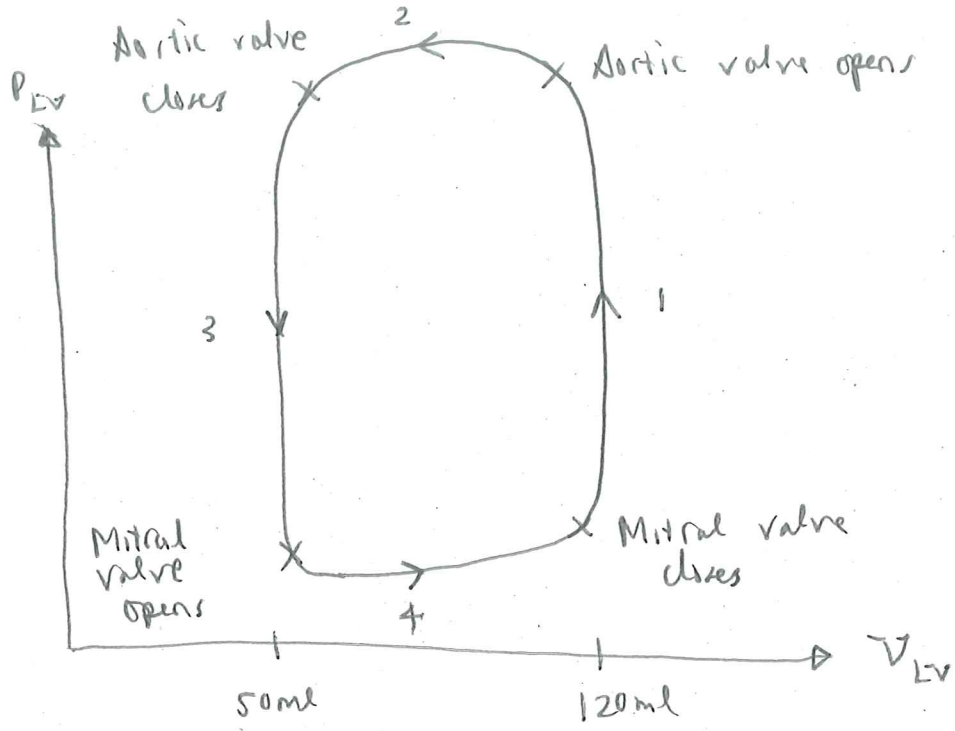 2
Aortic valve
closes
Aortic valve opens
P LV
1
3
Mitral
valve
opens
Mitral valve
closes
4
V LV
50ml
120ml